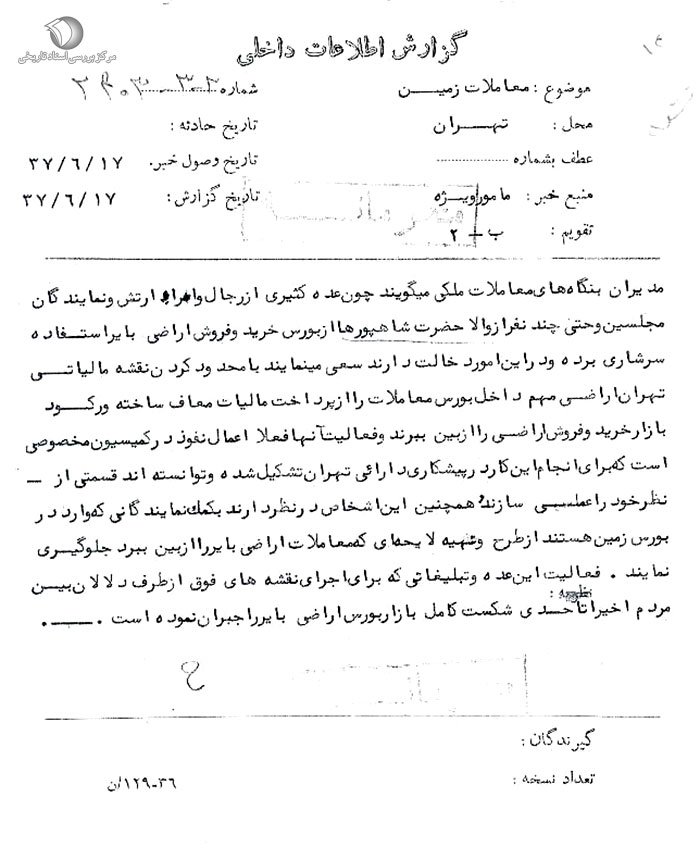 مرکز بررسی اسناد تاریخی
گزارش اطلاعات داخلی
موضوع : معاملات زمیــن
شماره
محل : تهـــران
تاریخ حادثه :
عطف بشماره ..................
تاریخ وصول خبر. ۳۷/۶/۱۷
منبع خبر : مامورویژه
تاریخ گزارش : ۳۷/۶/۱۷
تقویم : ب + ۲
مدیران بنگاه‌های معاملات ملکی میگویند چون عده کثیری از رجال وافراد ارتش ونمایندگان
مجلسین وحتی چند نفر از والا حضرت شاهپورها از بورس خرید وفروش اراضی بایر استفاده
سرشاری برده ودر این امور دخالت دارند سعی مینمایند با محدود کردن نقشه مالیاتــی
تهران اراضی مهم داخل بورس معاملات را از پرداخت مالیات معاف ساخته ورکــود
بازار خرید وفروش اراضــی را از بین ببرند وفعالیت آنها فعلا اعمال نفوذ در کمیسیون مخصوصی
است که برای انجام این کار در پیشکاری دارائی تهران تشکیل شده وتوانسته اند قسمتی از ــ
نظر خود را عملــی سازند همچنین این اشخاص در نظر دارند بکمک نمایندگانی که وارد در
بورس زمین هستند از طرح وتهیه لایحه‌ای که معاملات اراضی بایر را از بین ببرد جلوگیری
نمایند . فعالیت این عده وتبلیغاتی که برای اجرای نقشه های فوق از طرف دلالان بیــن
نظریه :
مردم اخیرا تاحــدی شکست کامل بازار بورس اراضی بایر را جبران نموده است . ــــ .
گیرندگان :
تعداد نسخه :
۳۶-۱۲۹/ن